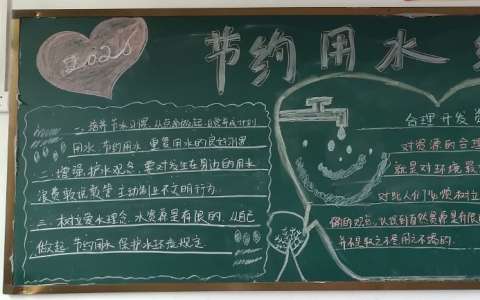 2025
节约用水
一、培养节水习惯,从点滴做起,自觉有计划
用水 节约用水 重复用水的良好习惯
二、增强护水观念,要对发生在身边的用水
浪费敢说敢管主动制止不文明行为
三、树立爱水理念,水资源是有限的,从自己
做起 节约用水 保护水环境
合理开发资
对资源的合理
就是对环境最
对此人们必须树立
确的观点,认识到自然资源是有限的
并不是取之不尽用之不竭的.